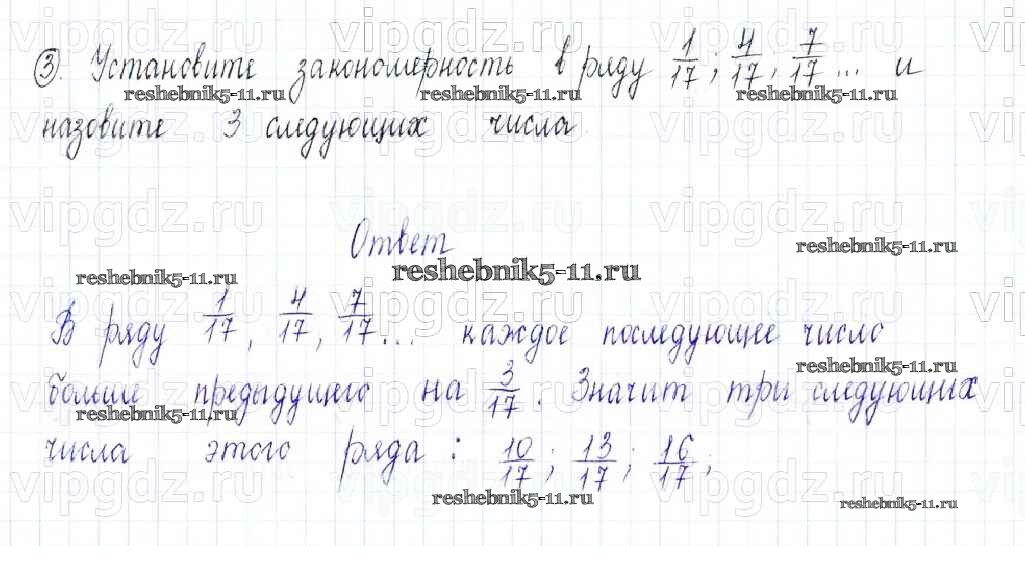 vipgdz.ru vipgdz.ru vipgdz.ru
③. Установите закономерность в ряду 1/17; 4/17; 7/17... и
reshebnik5-11.ru reshebnik5-11.ru reshebnik5-11.ru
назовите 3 следующих числа.
vipgdz.ru vipgdz.ru vipgdz.ru
vipgdz.ru vipgdz.ru vipgdz.ru
Ответ
reshebnik5-11.ru
reshebnik5-11.ru reshebnik5-11.ru
vipgdz.ru vipgdz.ru vipgdz.ru
В ряду 1/17, 4/17, 7/17... каждое последующее число
reshebnik5-11.ru
больше предыдущего на 3/17. Значит три следующих
reshebnik5-11.ru
vipgdz.ru vipgdz.ru vipgdz.ru
числа этого ряда: 10/17; 13/17; 16/17;
vipgdz.ru vipgdz.ru vipgdz.ru
reshebnik5-11.ru reshebnik5-11.ru